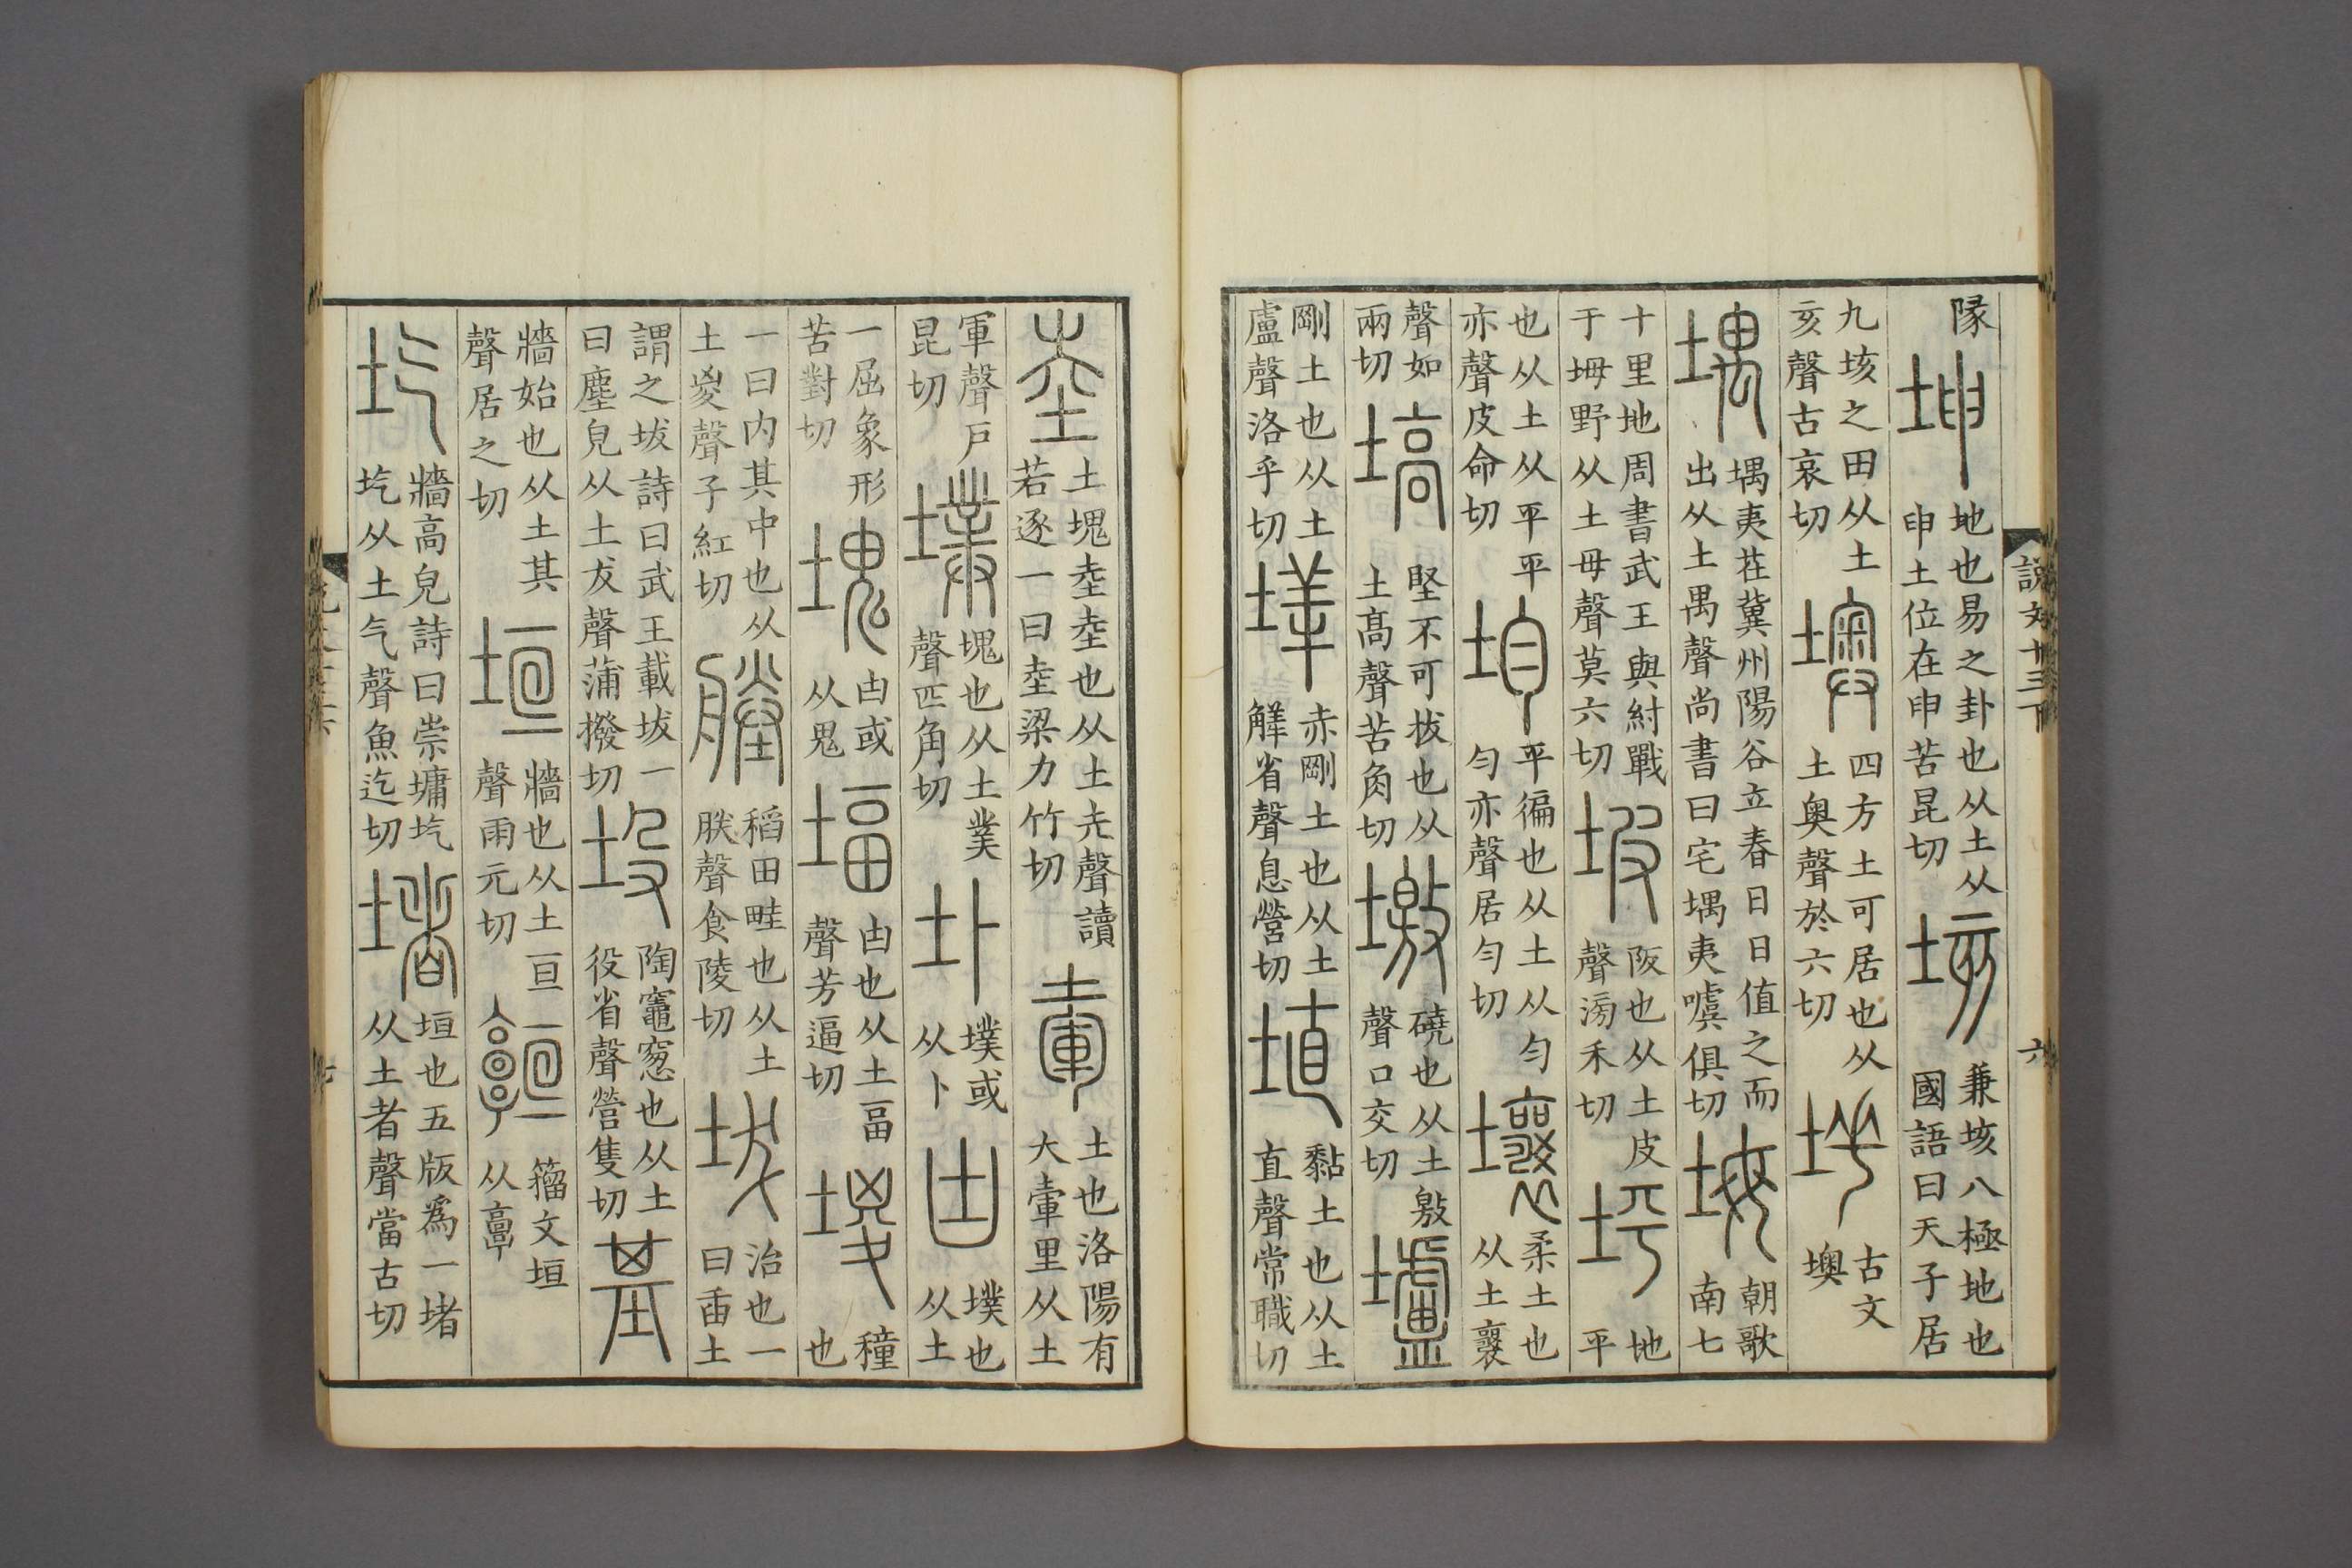 說文十三下 六
隊坤地也易之卦也从土从申土位在申苦昆切垓兼垓八極地也國語曰天子居
九垓之田从土亥聲古哀切墺四方土可居也从土奧聲於六切古文墺
堣堣夷在冀州陽谷立春日日值之而出从土禺聲尚書曰宅堣夷噳俱切坶朝歌南七
十里地周書武王與紂戰于坶野从土母聲莫六切坡阪也从土皮聲滂禾切坪地平
也从土从平平亦聲皮命切均平徧也从土从匀匀亦聲居匀切壤柔土也从土襄
聲如兩切塙堅不可拔也从土高聲苦角切墽磽也从土敫聲口交切壚
剛土也从土盧聲洛乎切垟赤剛土也从土觲省聲息營切埴黏土也从土直聲常職切
坴土塊坴坴也从土圥聲讀若逐一曰坴梁力竹切𡋯土也洛陽有大𡋯里从土
軍聲戶昆切墣塊也从土菐聲匹角切圤墣或从卜凷墣也从土
一屈象形苦對切塊凷或从鬼堛凷也从土畐聲芳逼切堫種也
一曰内其中也从土㚇聲子紅切塍稻田畦也从土朕聲食陵切坺治也一曰臿土
謂之坺詩曰武王載坺一曰塵皃从土犮聲蒲撥切垼陶竈窻也从土役省聲營隻切基
牆始也从土其聲居之切垣牆也从土亘聲雨元切𩫥籒文垣从𩫖
圪牆高皃詩曰崇墉圪圪从土气聲魚迄切堵垣也五版爲一堵从土者聲當古切
七